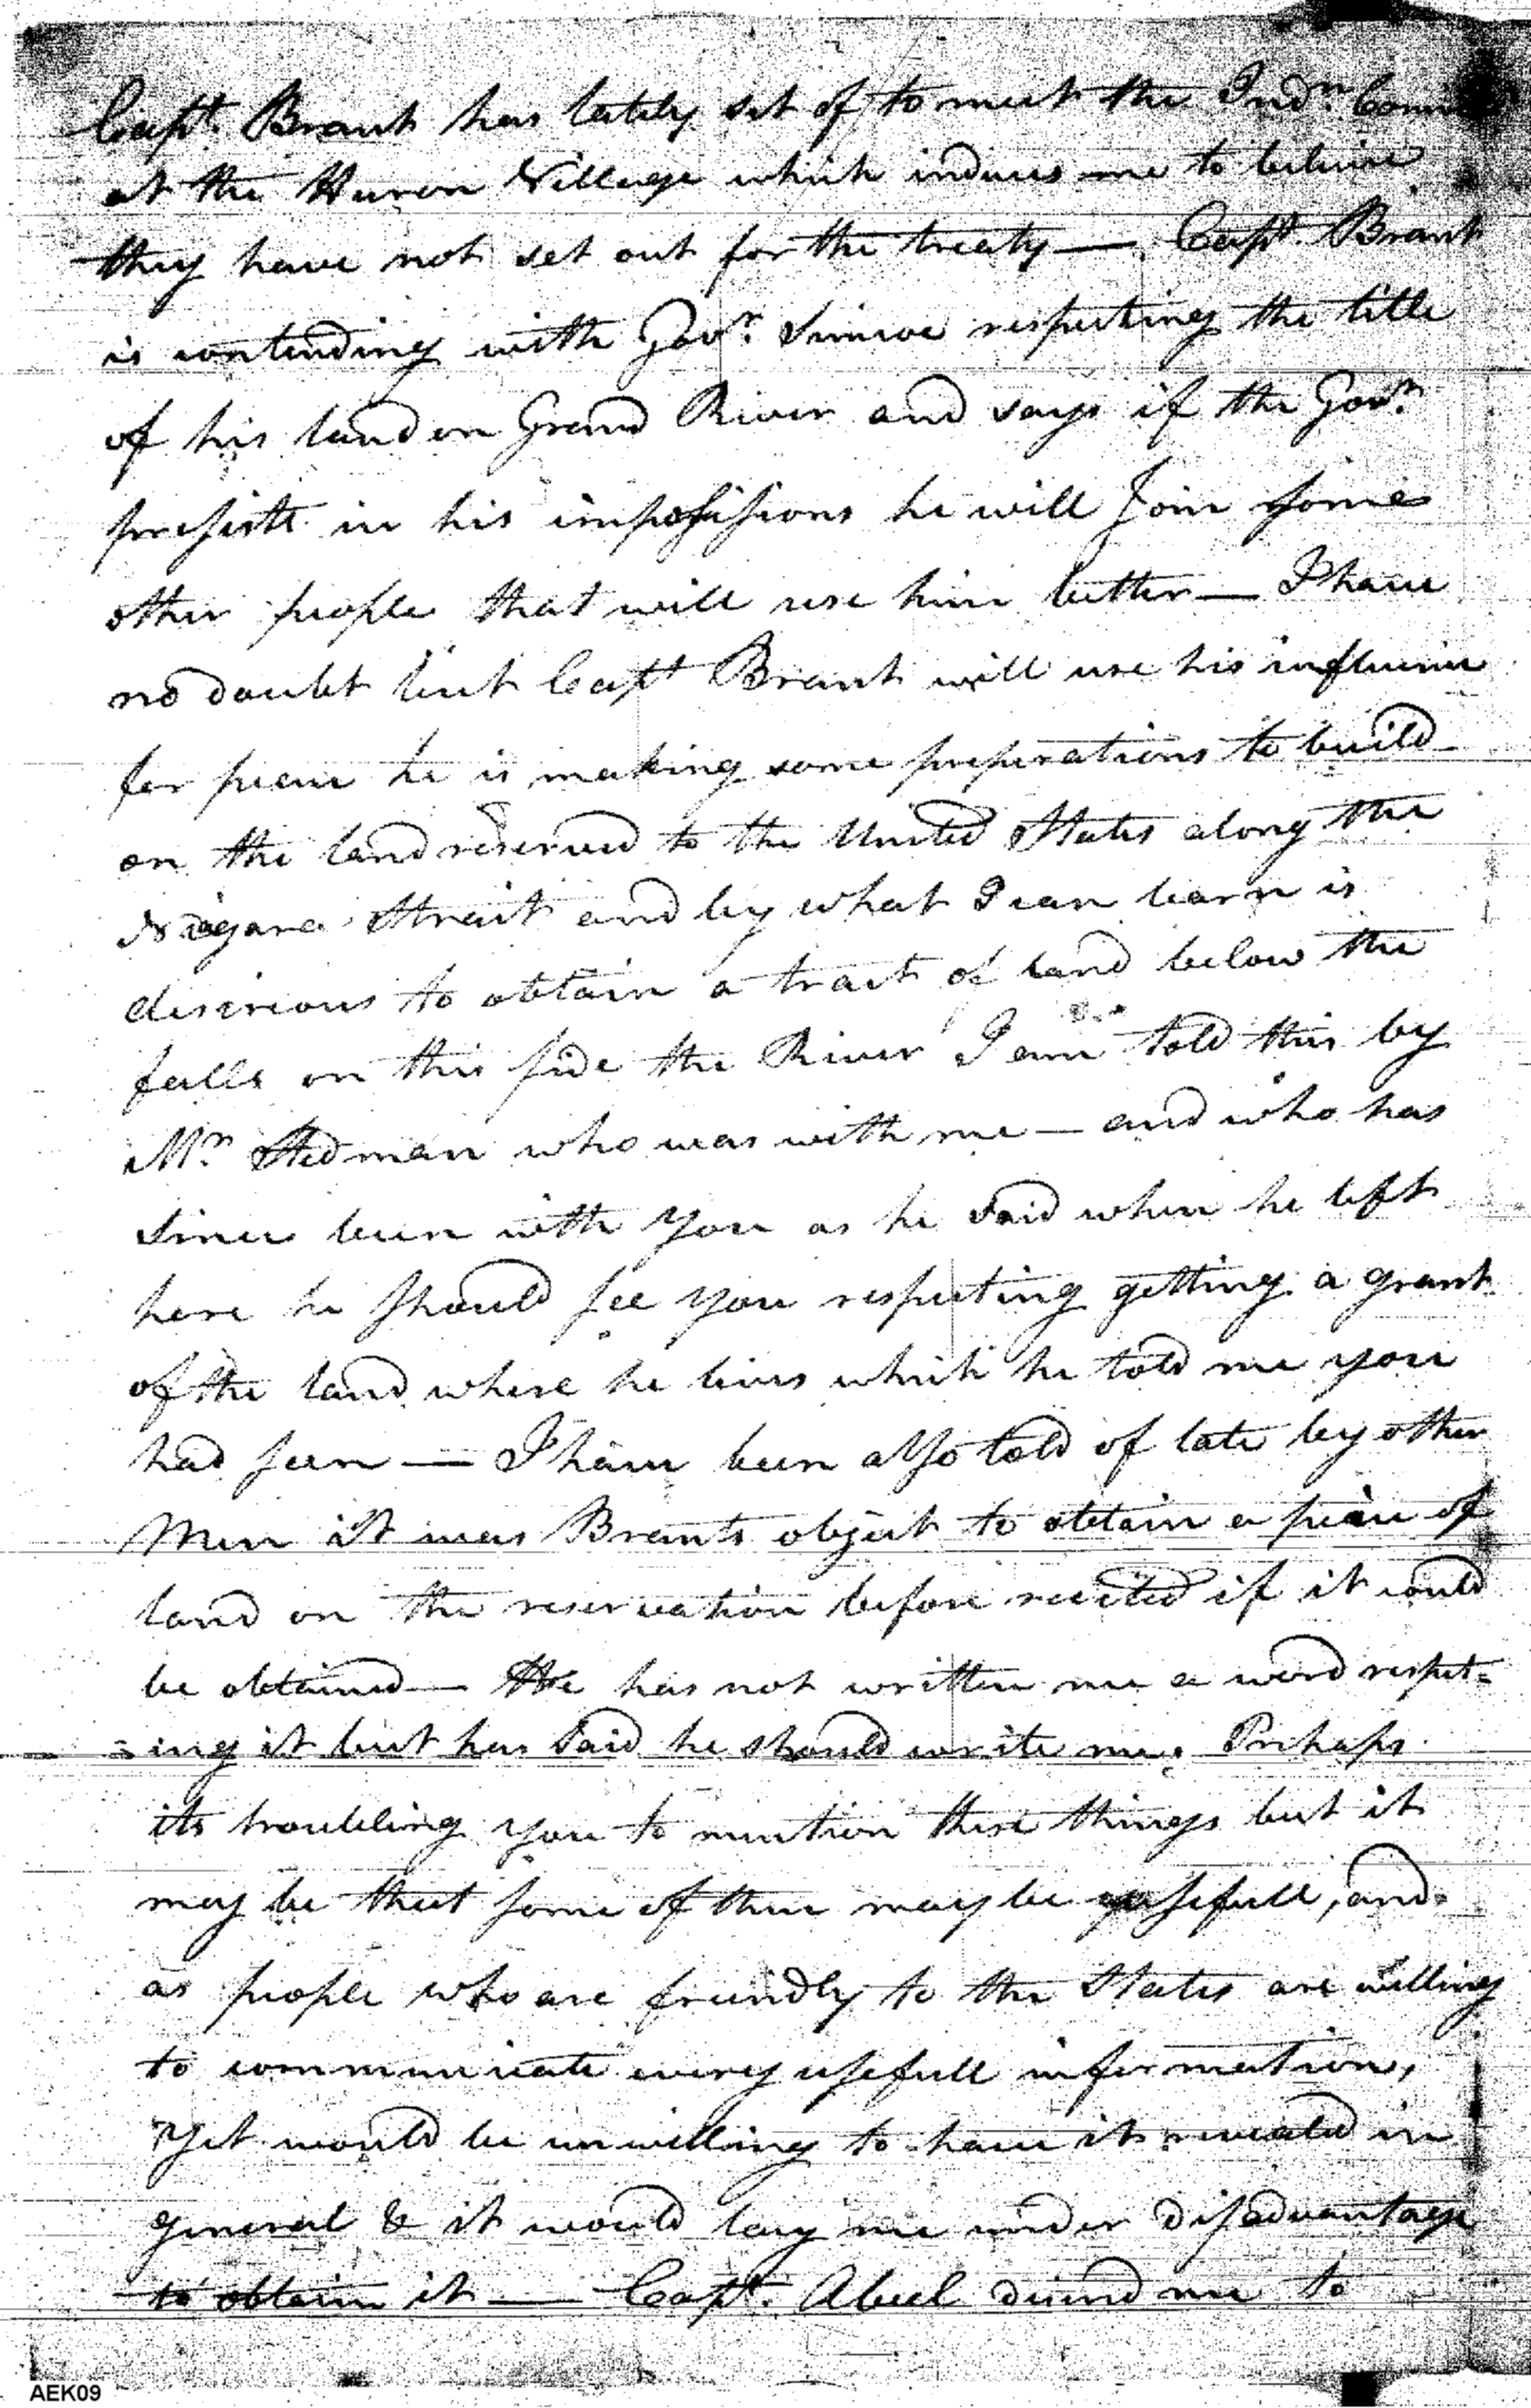 Capt. Brant has lately set of to meet the Indn.
at the Huron Village which induces me to believe
they have not set out for the treaty — Capt. Brant
is contending with Govr. Simcoe respecting the title
of his land on Grand River and says if the Govr.
presists in his impossisions he will Join some
other people that will use him better — I have
no doubt but Capt Brant will use his influence
for peace he is making some preperations to build
on the land reserved to the United States along the
Niagara Strait and by what I can learn is
discrious to obtain a tract of land below the
falls on this side the River I am told this by
Mr. Stedman who was with me — and who has
Since been with you as he Said when he left
here he should see you respecting getting a grant
of the land where he lives which he told me you
had seen — I have been also told of late by other
Men it was Brants object to obtain a peice of
land on the reservation before recited if it could
be obtained — He has not written me a word respect=
=ing it but has Said he should write me. Perhaps
its troubling you to mention these things but it
may be that some of them may be usefull, and
as people who are friendly to the States are willing
to communicate every usefull information,
Yet would be unwilling to have it revealed in
general & it would lay me under disadvantage
to obtain it — Capt. Abeel me to
AEK09